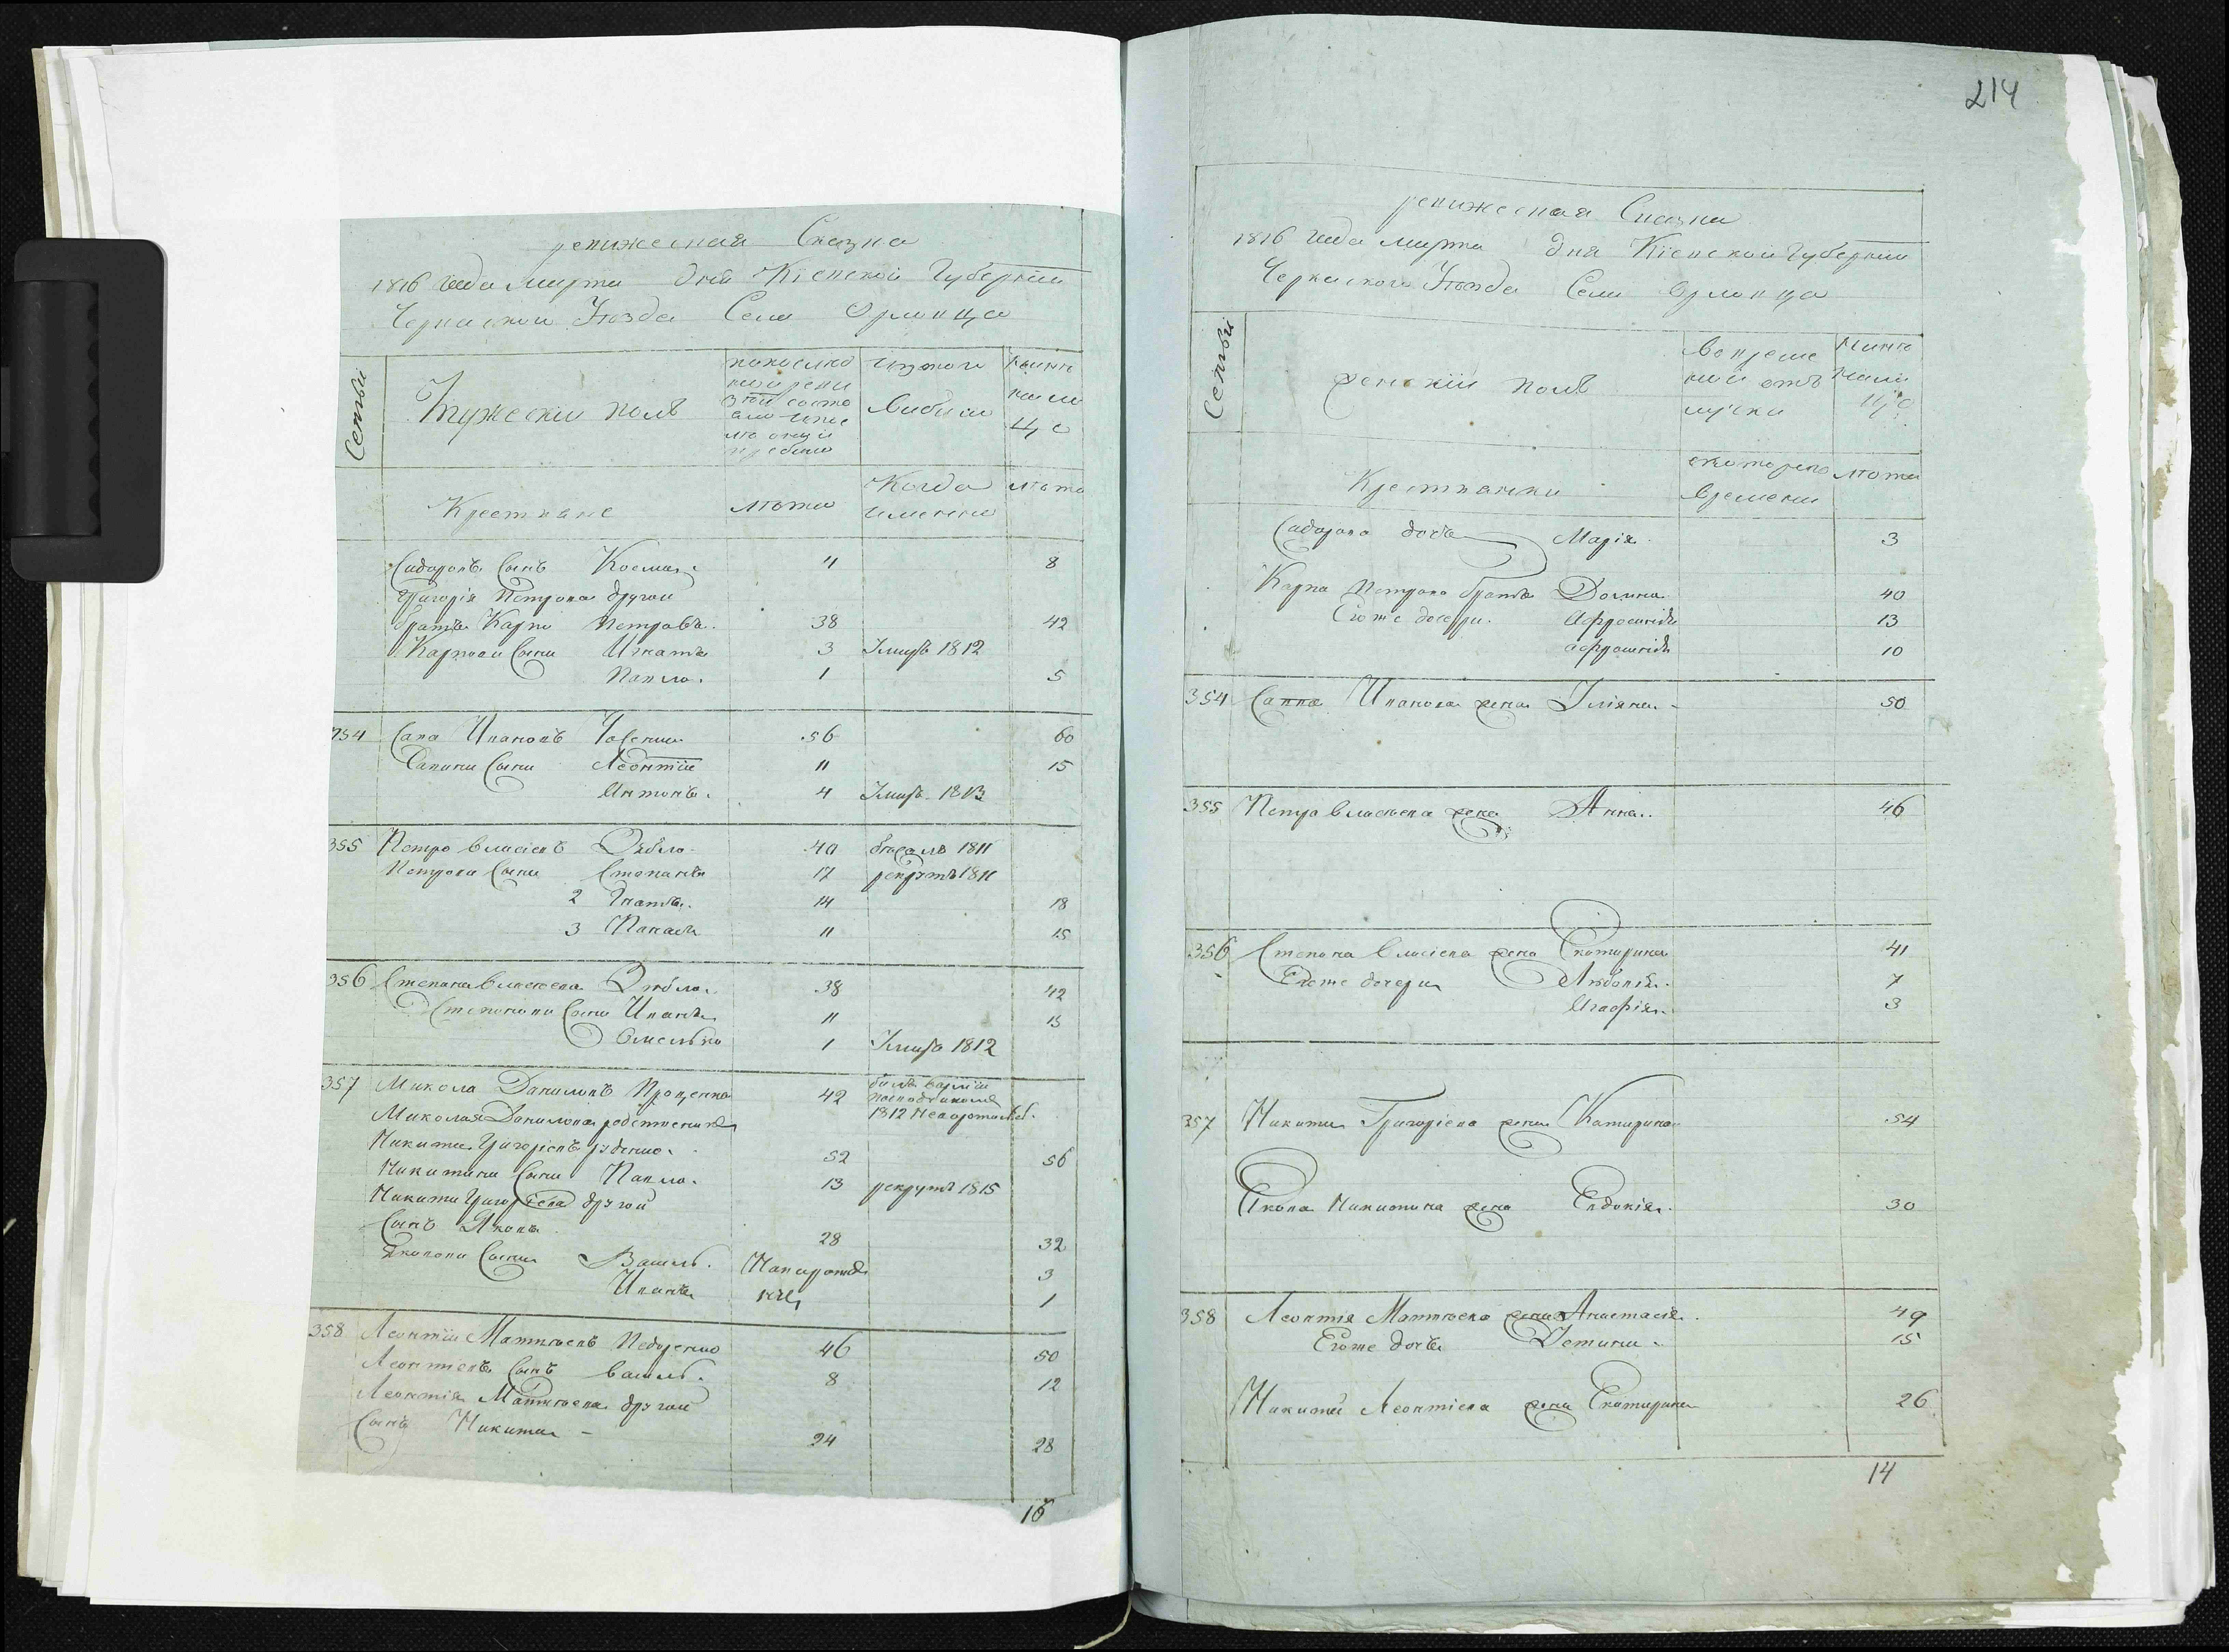 ревижеская Сказка
1816 года Марта дня Кіевской Губерніи
Черкаского Уѣзда Села Орловца
Семьи
Мужески полъ
по последнои ревизіи состояло и после онои прибыло
изтого Выбыло
Нынѣ на лице
Крестяне
лѣта
Когда именно
лѣта
Сидоровъ Сынъ Косма. 4 8
Григорія Петрова другои
братъ Карпо Петровъ. 38 42
Карпови Сыни Игнатъ 3 Умеръ 1812
Павло. 1 5
354 Сава Ивановъ 56 60
Савини Сыни Леонтіи 11 15
Антонъ. 4 Умеръ 1813
355 Петро Власіевъ Дябло. 40 бѣжалъ 1811
Петрови Сыни Степанъ 17 рекрутъ 1811
2 Гнатъ. 14 18
3 Панасъ 11 15
356 Степанъ Власіевъ Дябло. 38 42
Степанови Сыни Иванъ 11 15
Омелько 1 Умеръ 1812
357 Микола Даниловъ Проценко 42
1812
Миколая Данилова родственикъ
Никита Григоріевъ 52 56
Никитини Сыни Павло. 13 рекрутъ 1815
Никити Григоріева другои
Сынъ Яковъ 28 32
Якови Сыни Василь. Новорожде 3
Иванъ ные 1
358 Леонтіи Матвѣевъ Недоренко 46 50
Леонтіевъ Сынъ Василь. 8 12
Леонтія Матвѣева другои
Сынъ Никита - 24 28
16
214
ревижеская Сказка
1816 года Марта дня Кіевской Губерніи
Черкаского Уѣзда Села Орловца
Семьи
женскіи полъ
Во временной отлучки
Нынѣ на лице
Крестянки
с котораго времени
лѣта
Сидорова дочь Марія. 3
Карпа Петрова Домна 40
Егоже дочери. Афросинія 13
Афросинія 10
354 Савва Иванова жена Уліяна - 50
355 Петра Власьева жена Анна.. 46
356 Степана Власіева жена Екатирина 41
Егоже дочери Любовія. 7
Агафія. 3
357 Никити Григоріева жена Катирина 54
Якова Никитина жена Евдокія. 30
358 Леонтія Матвѣева жена Анастасія. 49
Егоже дочь Устина. 15
Никити Леонтіева жена Екатирина 26
14